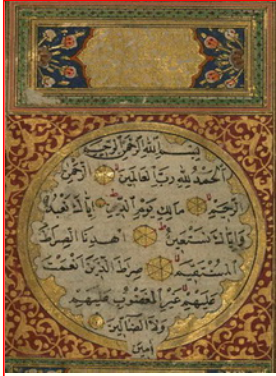 بسم الله الرحمن الرحيم
الحمد لله رب العالمين الرحمن
الرحيم مالك يوم الدين إياك نعبد
وإياك نستعين اهدنا الصراط
المستقيم صراط الذين أنعمت
عليهم غير المغضوب عليهم
ولا الضالين
آمين